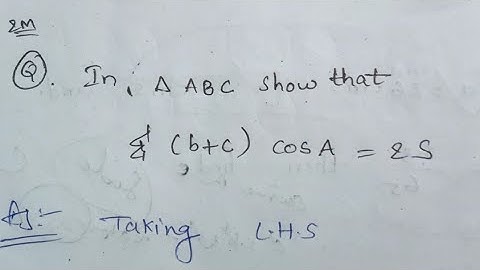 2M
Q. In, Δ ABC show that
Σ (b+c) cos A = 2S
As:- Taking L.H.S